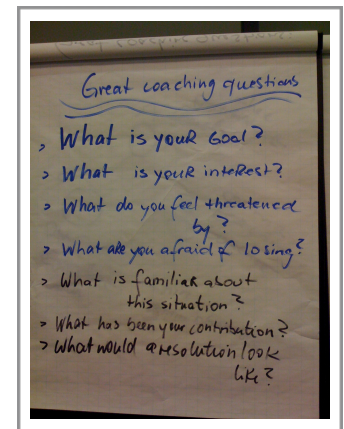 Great coaching questions
> What is your Goal?
> What is your interest?
> What do you feel threatened
by?
> What are you afraid of losing?
> What is familiar about
this situation?
> What has been your contribution?
> What would a resolution look
like?